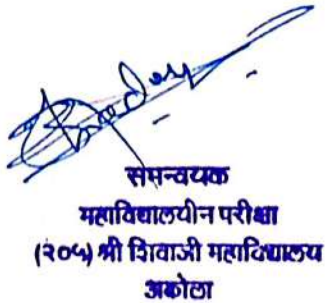 समन्वयक
महाविद्यालयीन परीक्षा
(२०५) श्री शिवाजी महाविद्यालय
अकोला